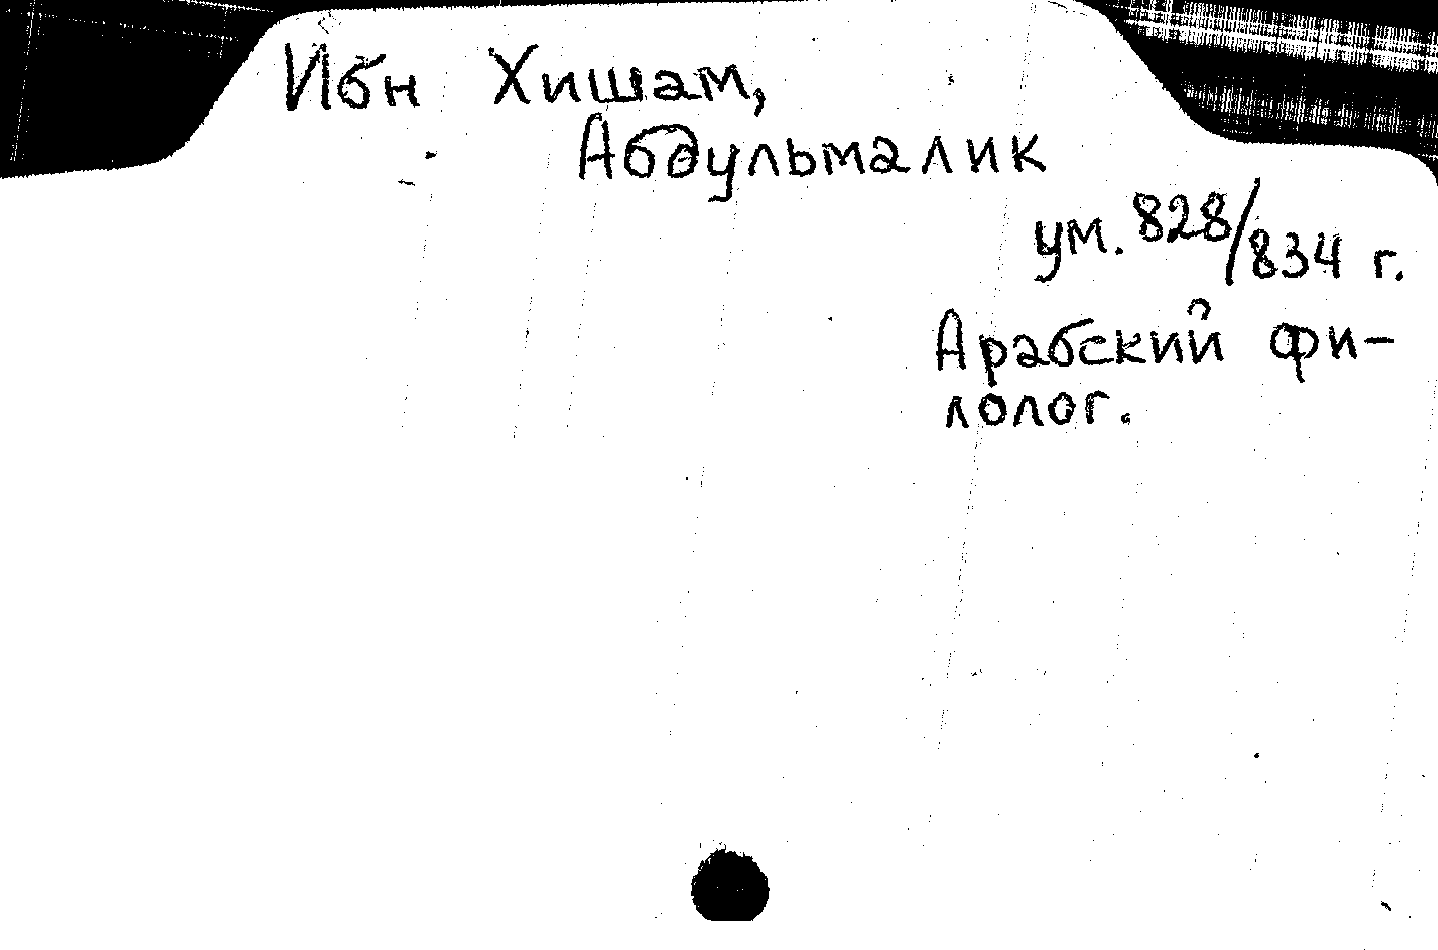 Ибн Хишам,
Абдульмалик
ум. 828/834 г.
Арабский фи-
лолог.